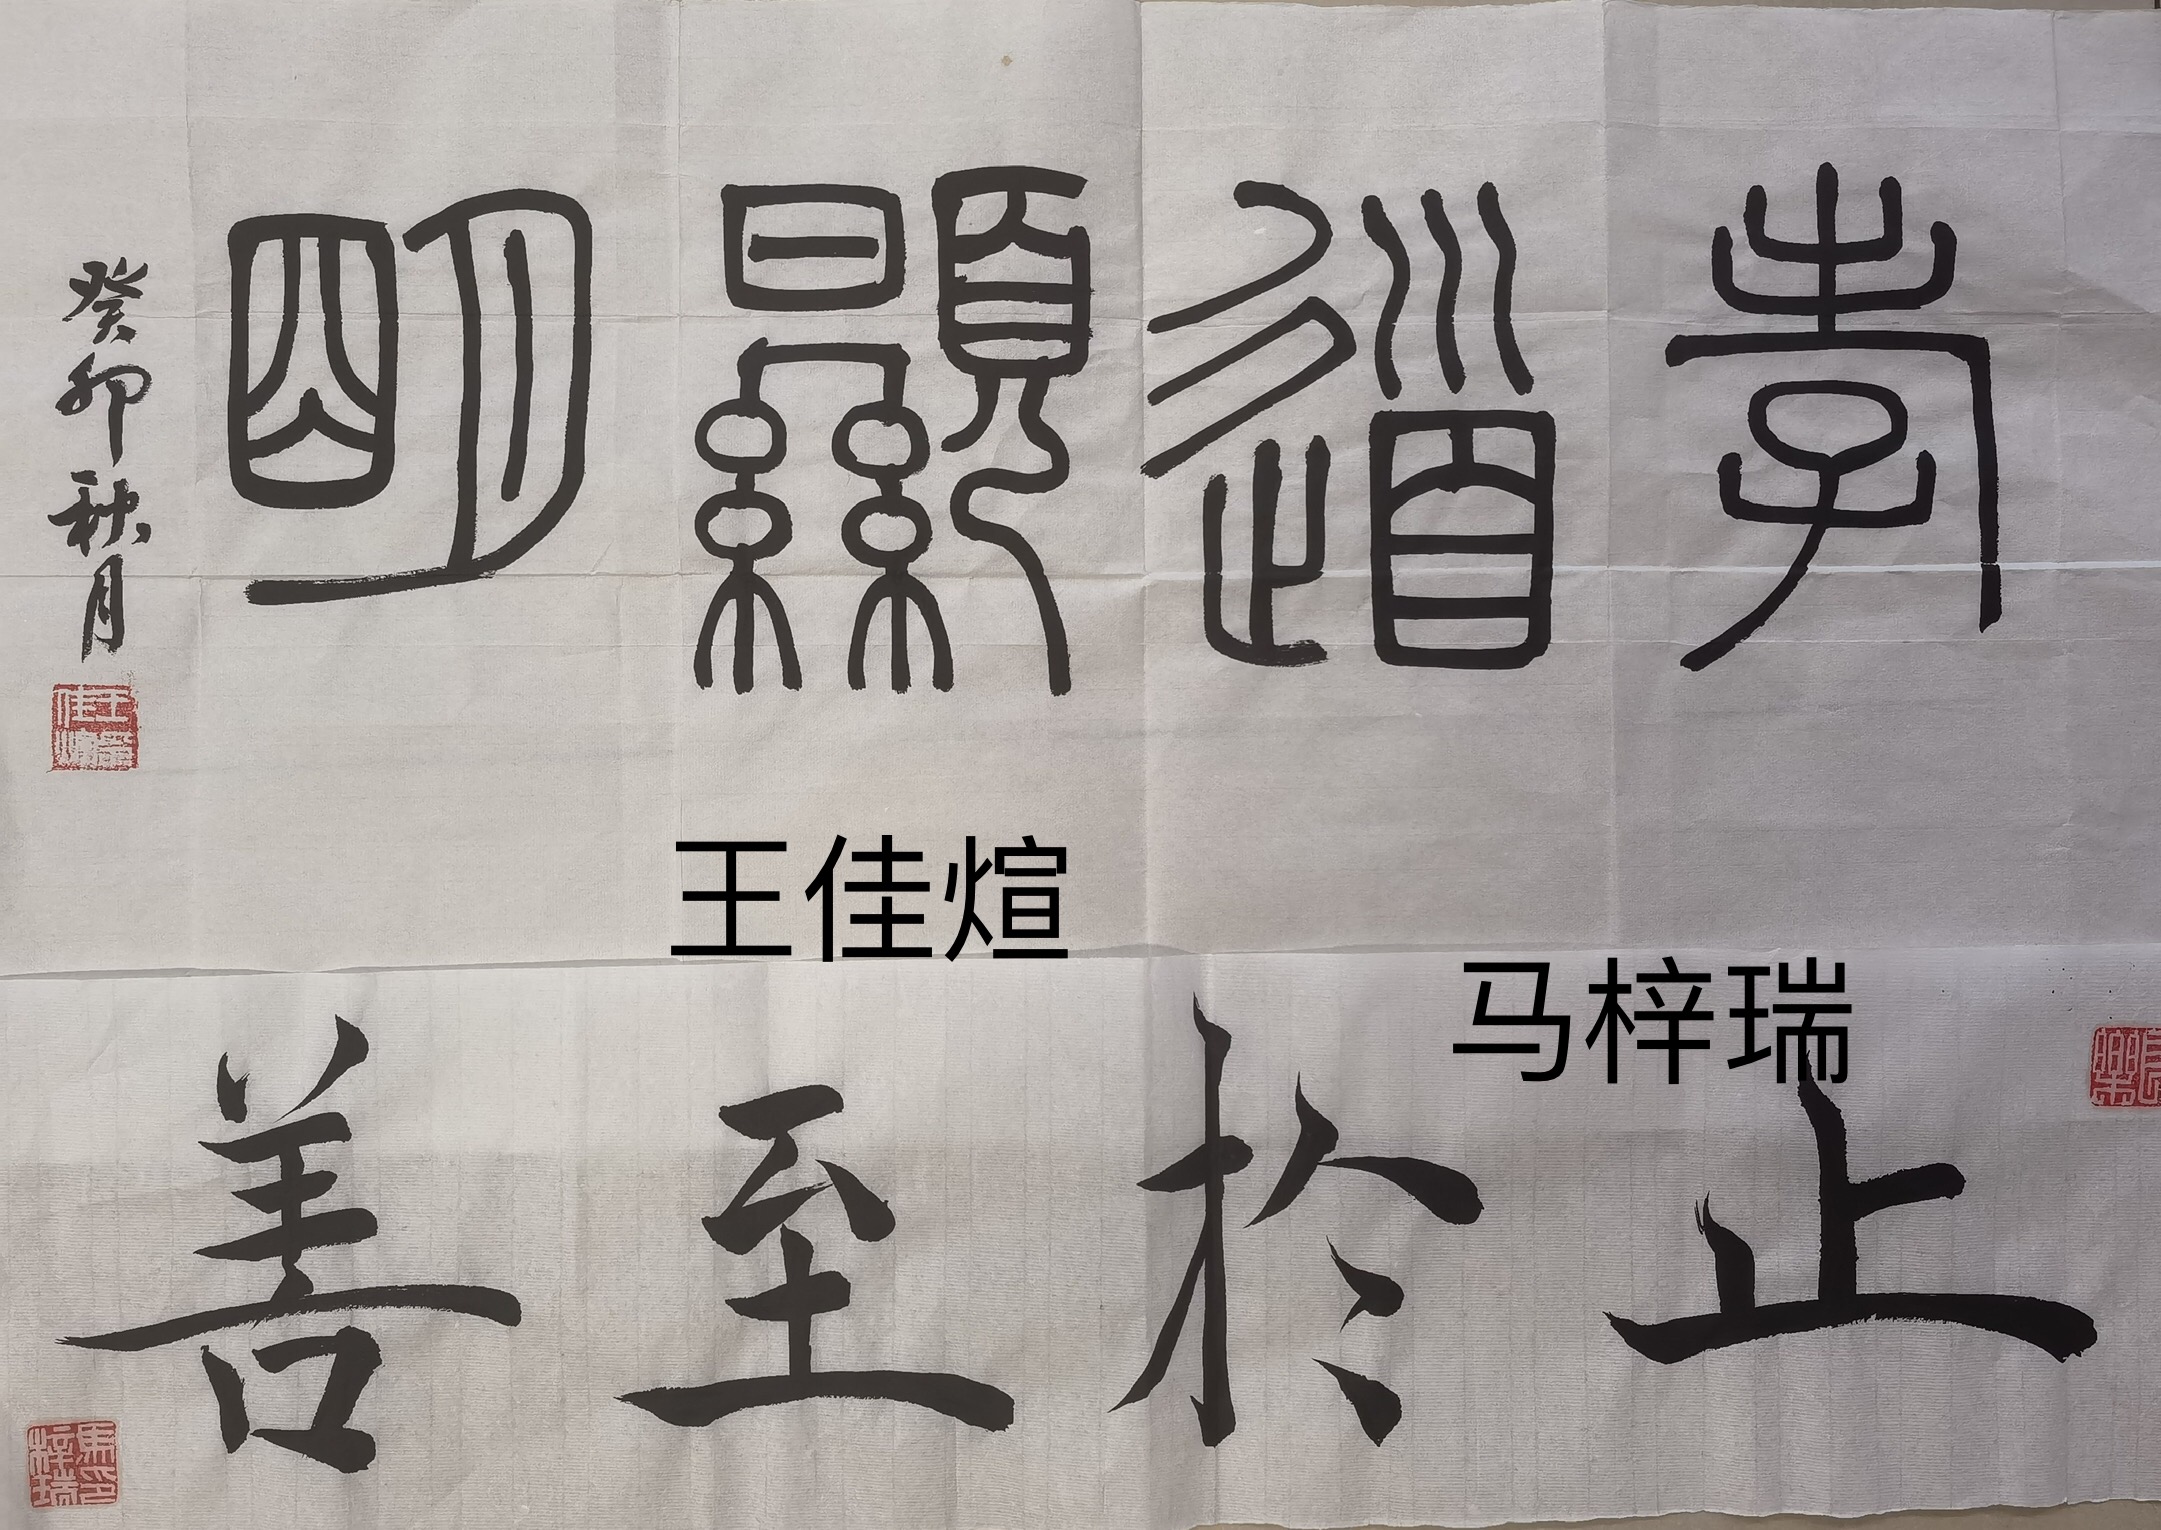 孝道顯明
癸卯秋月
王佳煊
王佳煊
马梓瑞
止於至善
馬梓瑞印